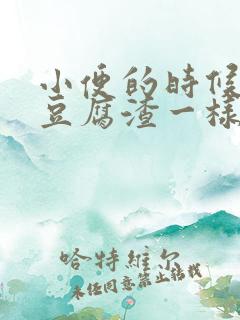 小便的时候
豆腐渣一样
哈特维尔
未经同意禁止转载